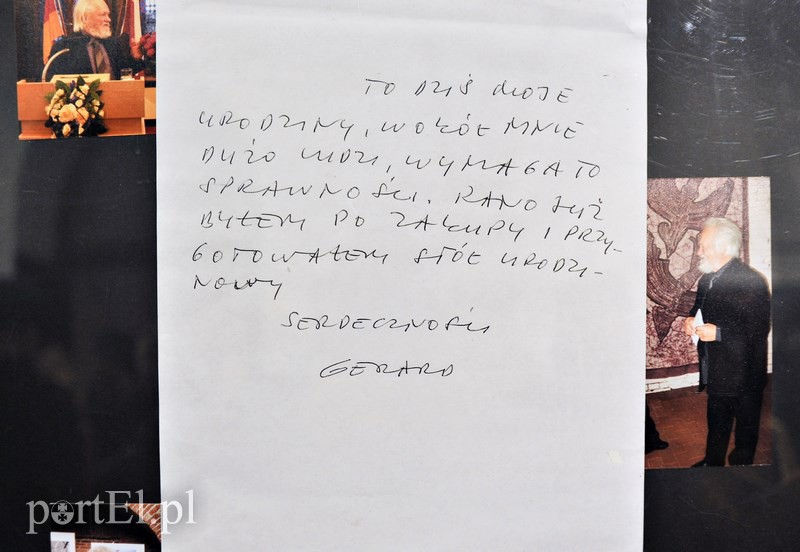 TO DZIŚ MOJE
URODZINY, WOKÓŁ MNIE
DUŻO LUDZI, WYMAGA TO
SPRAWNOŚCI. RANO JUŻ
BYŁEM PO ZAKUPY I PRZY-
GOTOWAŁEM STÓŁ URODZI-
NOWY
SERDECZNOŚCI
GERARD
portEl.pl